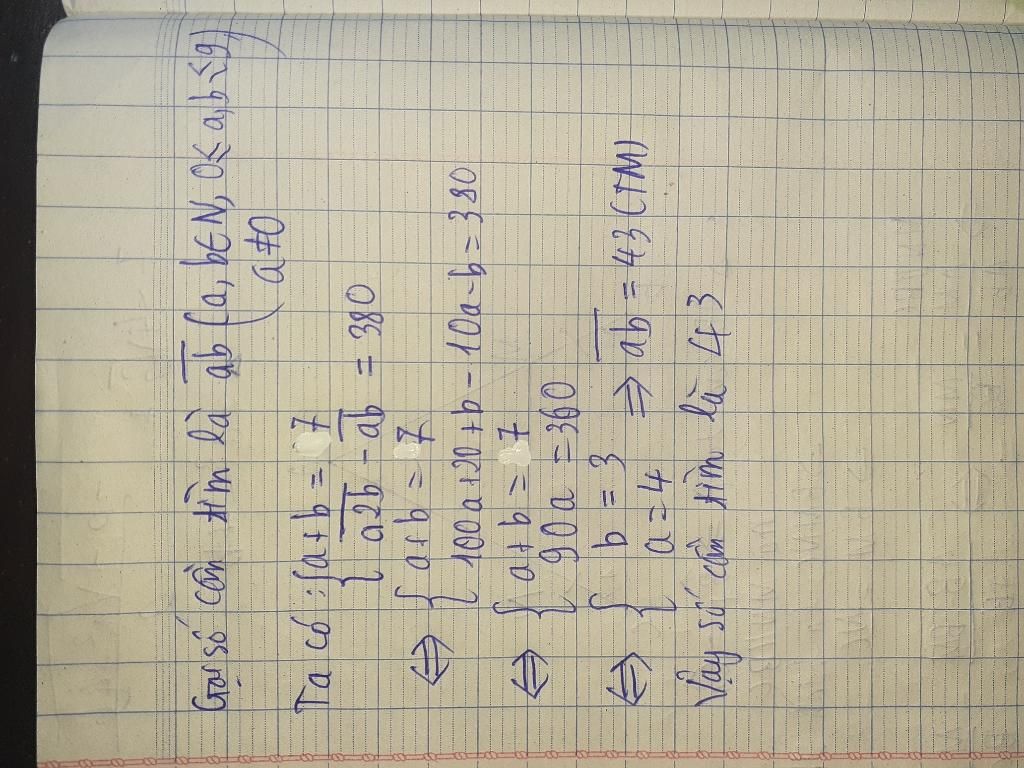 Gọi số cần tìm là ab̅ (a, b∈N, 0≤a,b≤9
a≠0)
Ta có: { a+b = 7
a2b̅ - ab̅ = 380
⇔ { a+b = 7
100a+20+b-10a-b=380
⇔ { a+b = 7
90a = 360
⇔ { b = 3
a = 4 ⇒ ab̅ = 43 (TM)
Vậy số cần tìm là 43